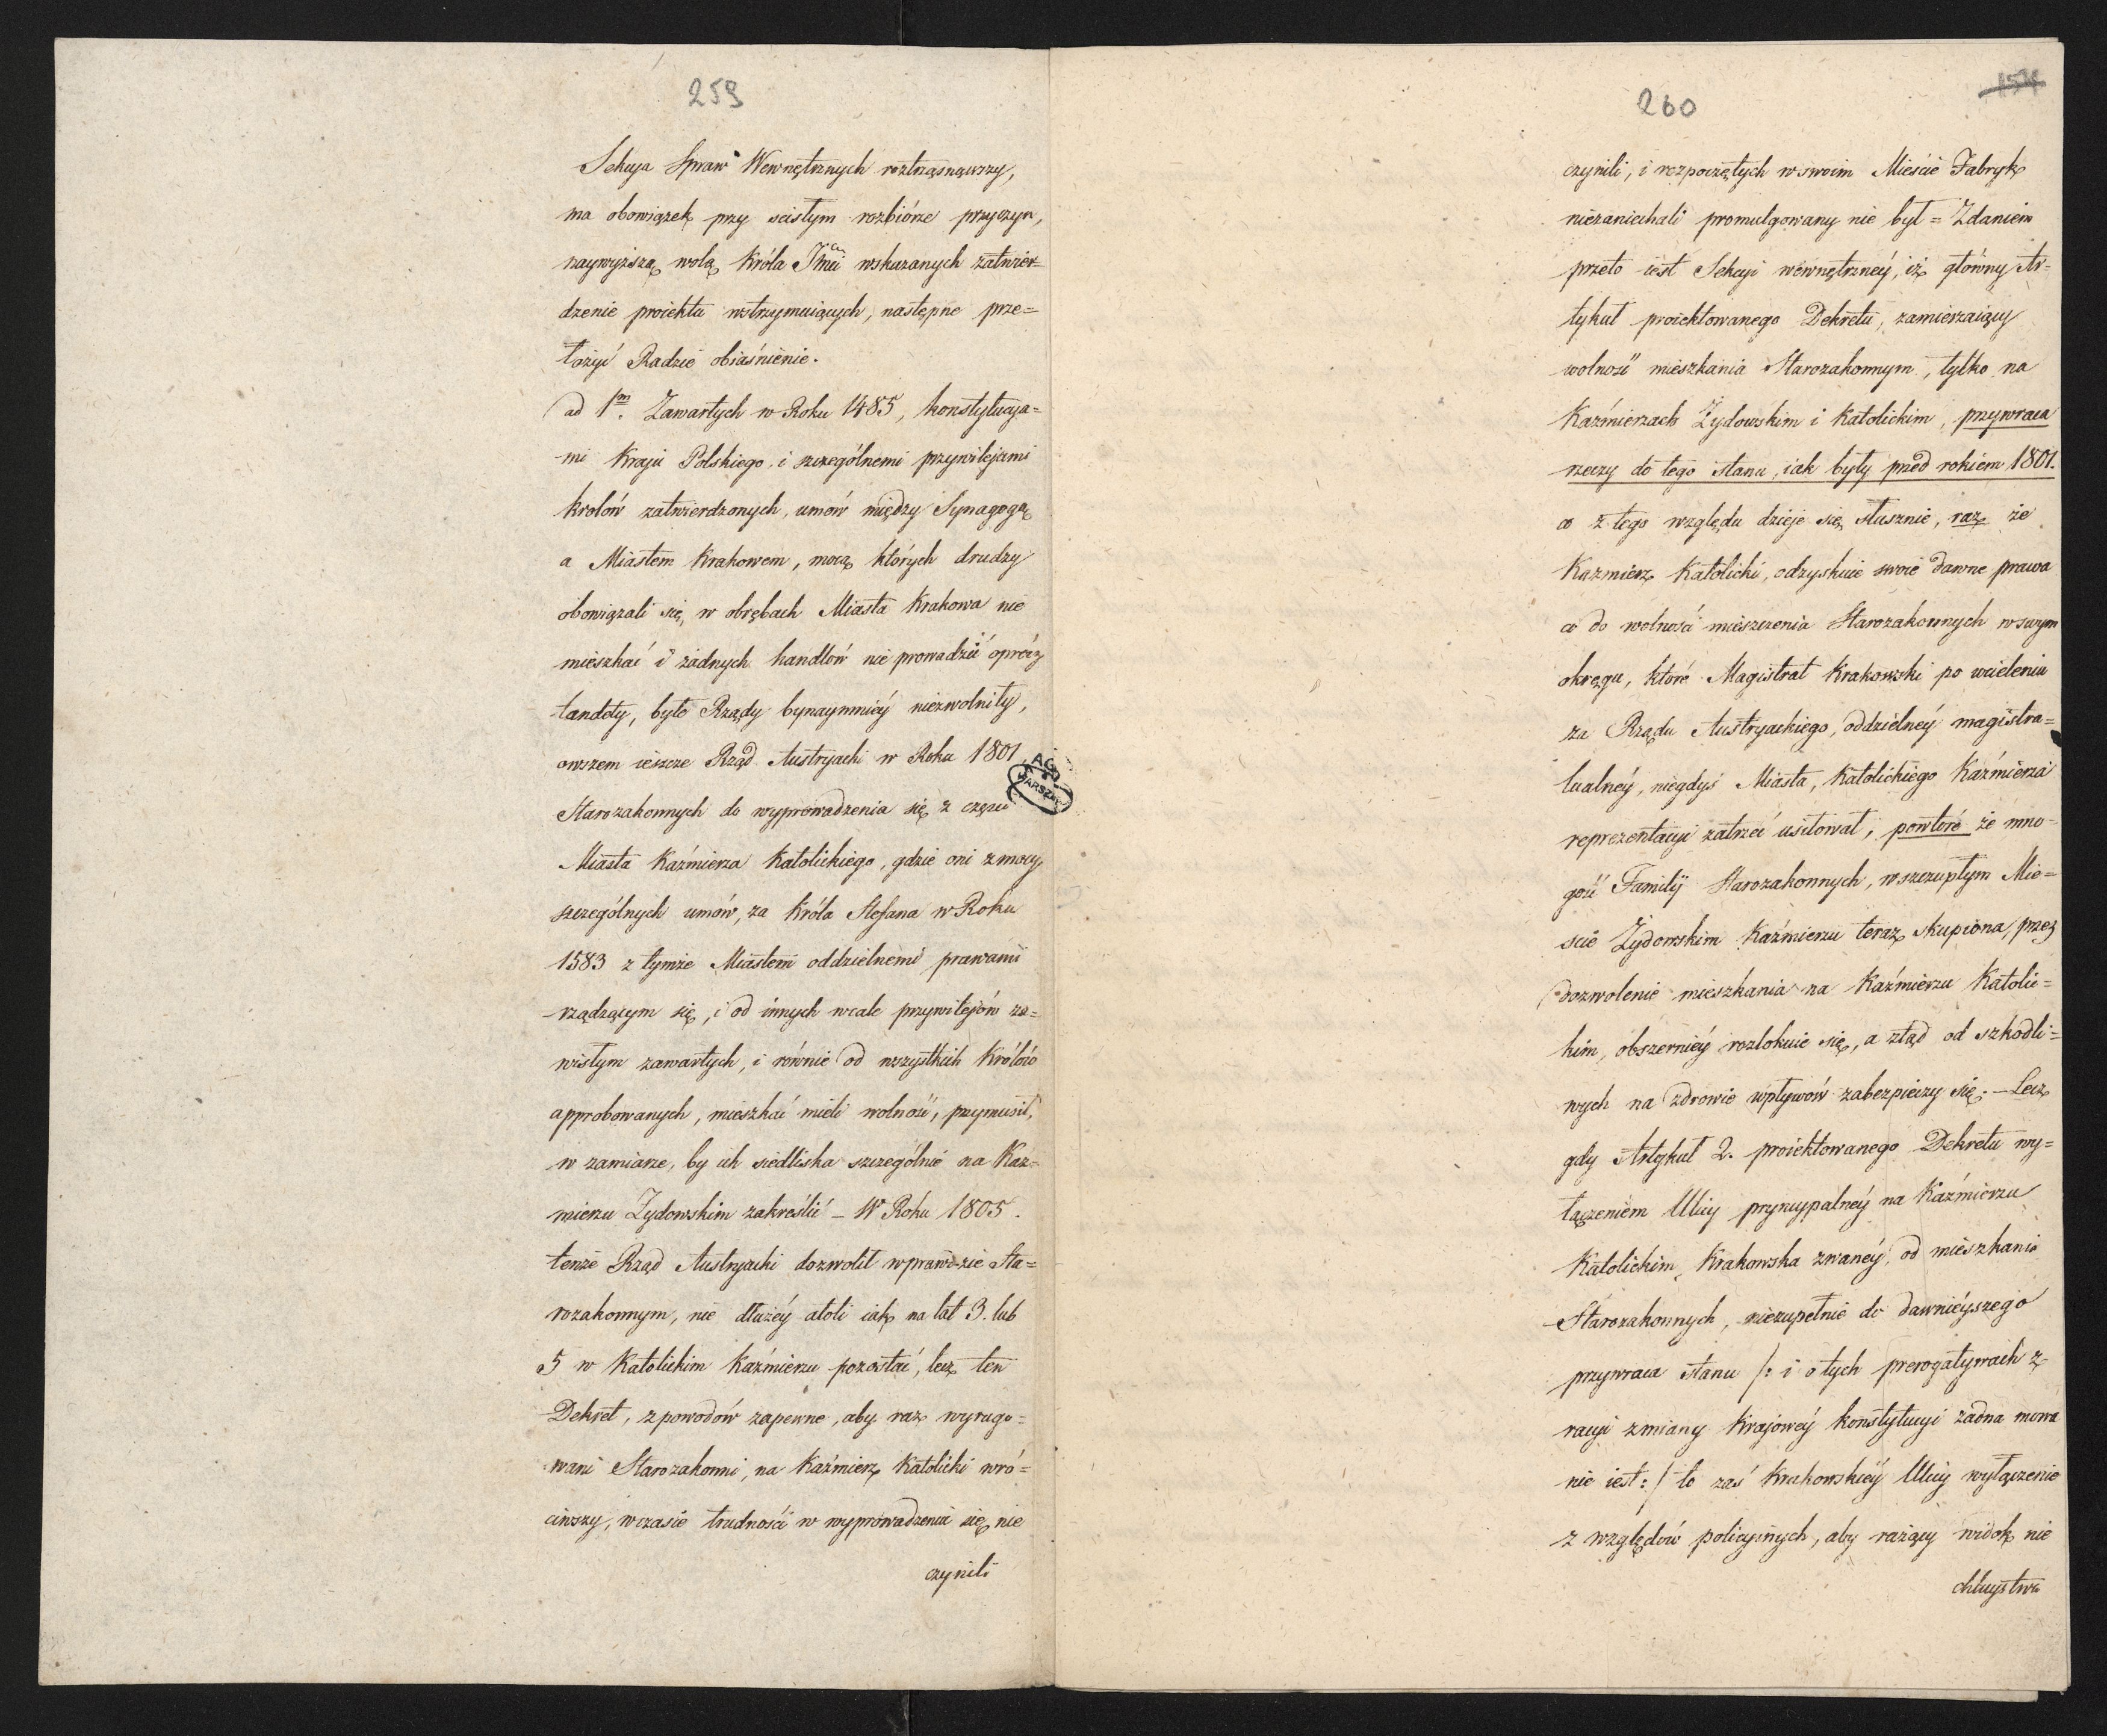 259
Sekcya Spraw Wewnętrznych roztrząsnąwszy,
ma obowiązek przy scisłym rozbiórze przyczyn,
naywyższą wolą Króla Jmci wskazanych zatwier=
dzenie proiektu wstrzymuiących, następne prze=
łożyć Radzie obiaśnienie.
ad 1m. Zawartych w Roku 1485, konstytucya=
-mi Kraju Polskiego i szczególnemi przywilejami
krolów zatwierdzonych, umów między Synagogą
a Miastem Krakowem, mocą których drudzy
obowiązali się, w obrębach Miasta Krakowa nie
mieszkać i żadnych handlów nie prowadzić oprócz
tandety, byłe Rządy bynaymniéy niezwolniły,
owszem ieszcze Rząd Austryacki w Roku 1801
Starozakonnych do wyprowadzenia się z części
Miasta Kaźmierza Katolickiego, gdzie oni z mocy
szczególnych umów, za Króla Stefana w Roku
1583 z tymże Miastem oddzielnemi prawami
rządzącym się, i od innych wcale przywilejów za=
wisłym zawartych, i równie od wszystkich Królów
approbowanych, mieszkać mieli wolność, przymusił,
w zamiarze, by ich siedliska szczególnie na Kaz=
mierzu Żydowskim zakreślić – W Roku 1805.
tenże Rząd Austryacki dozwolił wprawdzie Sta=
rozakonnym, nie dłużéy atoli iak na lat 3. lub
5 w Katolickim Kaźmierzu pozostać, lecz ten
Dekret, z powodów zapewne, aby raz wyrugo=
wani Starozakonni, na Kaźmierz Katolicki wró=
ciwszy, w czasie trudności w wyprowadzeniu się nie
czynili
AGD
WARSZAWA
260
154
czynili, i rozpoczętych w swoim Mieście Fabryk
niezaniechali promulgowany nie był = Zdaniem
przeto iest Sekcyi wewnętrznéy, iż główny Ar=
tykuł proiektowanego Dekretu, zamierzaiący
wolność mieszkania Starozakonnym, tylko na
Kaźmierzach Żydowskim i Katolickim, przywraca
rzeczy do tego stanu, iak były przed rokiem 1801.
co z tego względu dzieje się słusznie, raz że
Kazmierz Katolicki, odzyskuie swoie dawne prawa
co do wolności mieszczenia Starozakonnych w swym
okręgu, które Magistrat Krakowski po wcieleniu
za Rządu Austryackiego, oddzielnéy magistra=
tualnéy, niegdyś Miasta, Katolickiego Kaźmierza
reprezentacyi zatrzeć usiłował, powtore że mno=
gość Familij Starozakonnych, w szczupłym Mie=
scie Żydowskim Kaźmierzu teraz skupiona, przez
dozwolenie mieszkania na Kaźmierzu Katolic=
kim, obszerniéy rozlokuie się, a ztąd od szkodli=
wych na zdrowie wpływów zabezpieczy się; – Lecz
gdy Artykuł 2. proiektowanego Dekretu wy=
łączeniem Ulicy pryncypalnéy na Kaźmierzu
Katolickim, Krakowska zwanéy, od mieszkania
Starozakonnych, niezupełnie do dawniéyszego
przywraca stanu /: i o tych prerogatywach z
racyi zmiany Krajowéy konstytucyi żadna mowa
nie iest :/ to zaś Krakowskiéy Ulicy wyłączenie
z względów policyinych, aby rażący widok nie
chluystwa